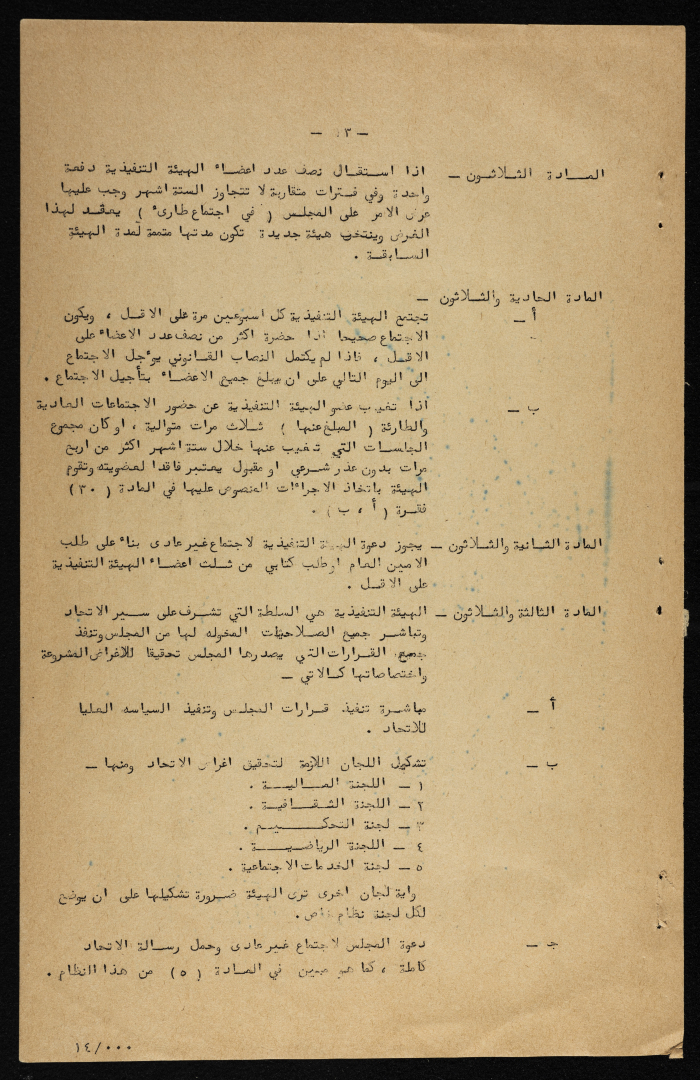 — ١٣ —
المادة الثلاثون — اذا استقال نصف عدد اعضاء الهيئة التنفيذية دفعة
واحدة وفي فترات متقاربة لا تتجاوز الستة اشهر وجب عليها
عرض الامر على المجلس ( في اجتماع طارىء ) يعقد لهذا
الغرض وينتخب هيئة جديدة تكون مدتها متممة لمدة الهيئة
السابقة .
المادة الحادية والثلاثون —
أ — تجتمع الهيئة التنفيذية كل اسبوعين مرة على الاقل ، ويكون
الاجتماع صحيحا اذا حضرة اكثر من نصف عدد الاعضاء على
الاقل ، فاذا لم يكتمل النصاب القانوني يوءجل الاجتماع
الى اليوم التالي على ان يبلغ جميع الاعضاء بتأجيل الاجتماع .
ب — اذا تغيب عضو الهيئة التنفيذية عن حضور الاجتماعات العادية
والطارئة ( المبلغ عنها ) ثلاث مرات متوالية ، او كان مجموع
الجلسات التي تغيب عنها خلال ستة اشهر اكثر من اربع
مرات بدون عذر شرعي او مقبول يعتبر فاقدا لعضويته وتقوم
الهيئة باتخاذ الاجراءات المنصوص عليها في المادة ( ٣٠ )
فقرة ( أ ، ب ) .
المادة الثانية والثلاثون — يجوز دعوة الهيئة التنفيذية لاجتماع غير عادى بناء على طلب
الامين العام او طلب كتابي من ثلث اعضاء الهيئة التنفيذية
على الاقل .
المادة الثالثة والثلاثون — الهيئة التنفيذية هي السلطة التي تشرف على سير الاتحاد
وتباشر جميع الصلاحيات المخوله لها من المجلس وتنفذ
جميع القرارات التي يصدرها المجلس تحقيقا للاغراض المشروعة
واختصاصاتها كالاتي —
أ — مباشرة تنفيذ قرارات المجلس وتنفيذ السياسه العليا
للاتحاد .
ب — تشكيل اللجان اللازمة لتحقيق اغراض الاتحاد ومنها —
١ — اللجنة المالية .
٢ — اللجنة الثقافية .
٣ — لجنة التحكيم .
٤ — اللجنة الرياضية .
٥ — لجنة الخدمات الاجتماعية .
واية لجان اخرى ترى الهيئة ضرورة تشكيلها على ان يوضع
لكل لجنة نظام خاص .
جـ — دعوة المجلس لاجتماع غير عادى وحمل رسالة الاتحاد
كاملة ، كما هو مبين في المادة ( ٥ ) من هذا النظام .
١٤/٠٠٠